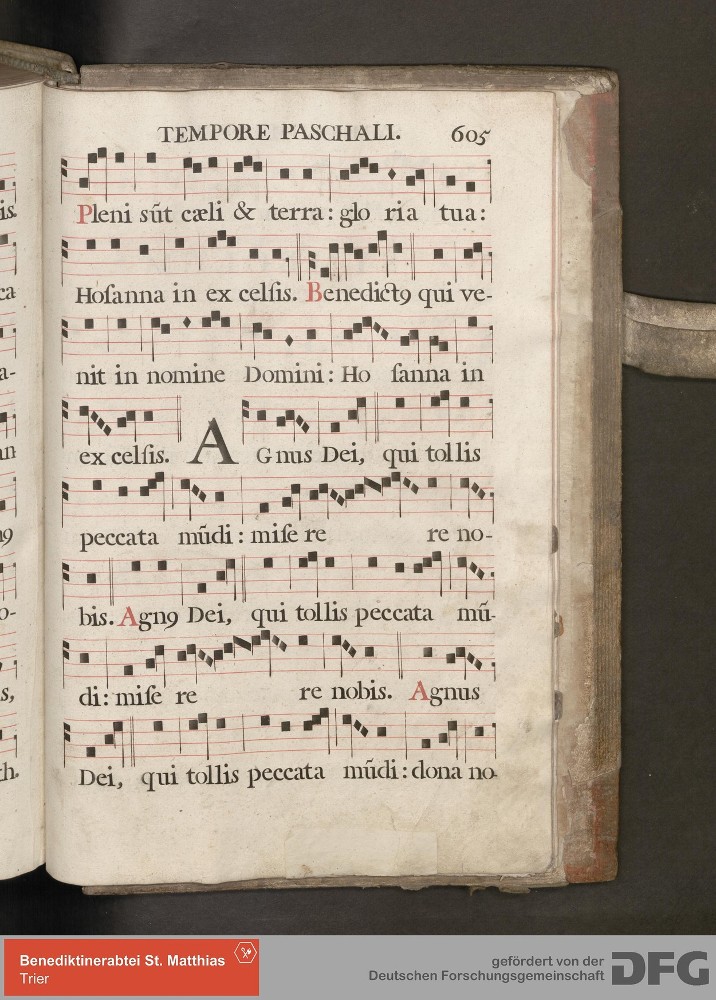 TEMPORE PASCHALI. 605
Pleni sūt cæli & terra: glo ria tua:
Hoſanna in ex celſis. Benedictꝯ qui ve-
nit in nomine Domini: Ho ſanna in
ex celſis. A Gnus Dei, qui tol lis
peccata mūdi: miſe re re no-
bis. Agnꝯ Dei, qui tollis peccata mū-
di: miſe re re nobis. Agnus
Dei, qui tollis peccata mūdi: dona no-
is.
ca
a-
an
ꝯ
o-
s,
th.
Benediktinerabtei St. Matthias
Trier
gefördert von der
Deutschen Forschungsgemeinschaft DFG